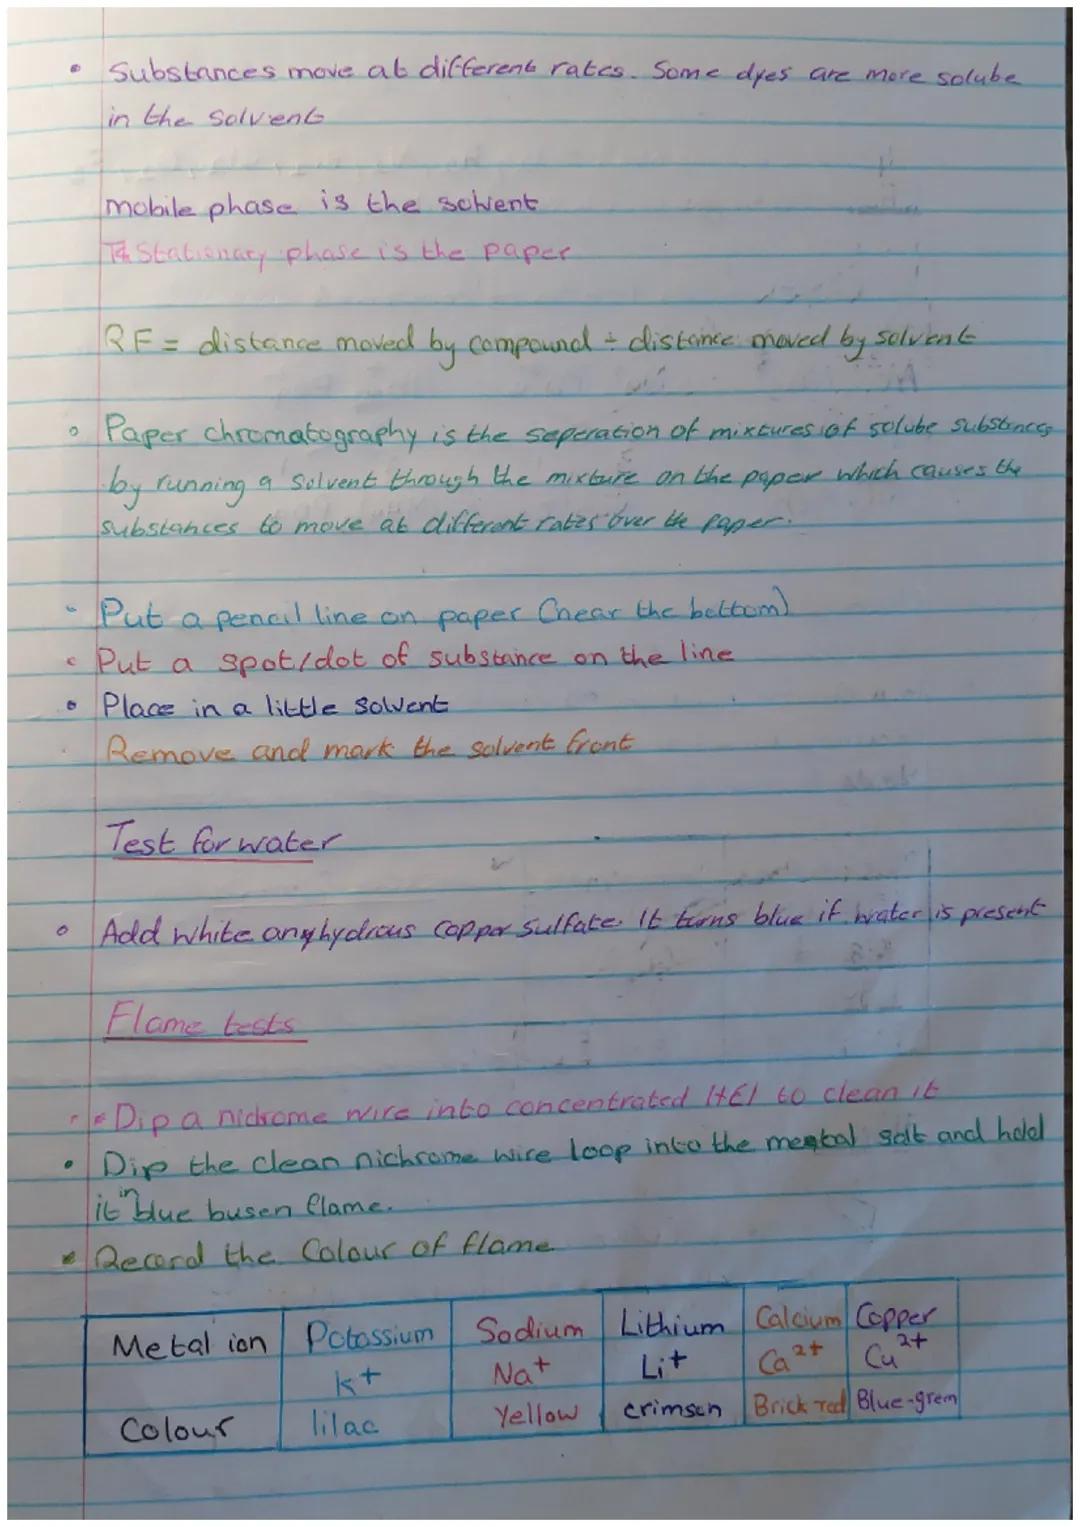 • Substances move at different rates. Some dyes are more solube
in the solvent
mobile phase is the solvent
Stationary phase is the paper
RF = distance moved by compound ÷ distance moved by solvent
• Paper chromatography is the seperation of mixtures of solube substances
by running a solvent through the mixture on the paper which causes the
substances to move at different rates over the paper.
• Put a pencil line on paper (near the bottom)
• Put a spot/dot of substance on the line
• Place in a little solvent
• Remove and mark the solvent front
Test for water
• Add white anyhydrous copper sulfate. It turns blue if water is present
Flame tests
• Dip a nichrome wire into concentrated HCl to clean it
• Dip the clean nichrome wire loop into the metal salt and hold
it in blue busen flame.
• Record the Colour of flame
Metal ion Potassium K+ Sodium Na+ Lithium Li+ Calcium Ca2+ Copper Cu2+
Colour lilac Yellow crimson Brick red Blue-green